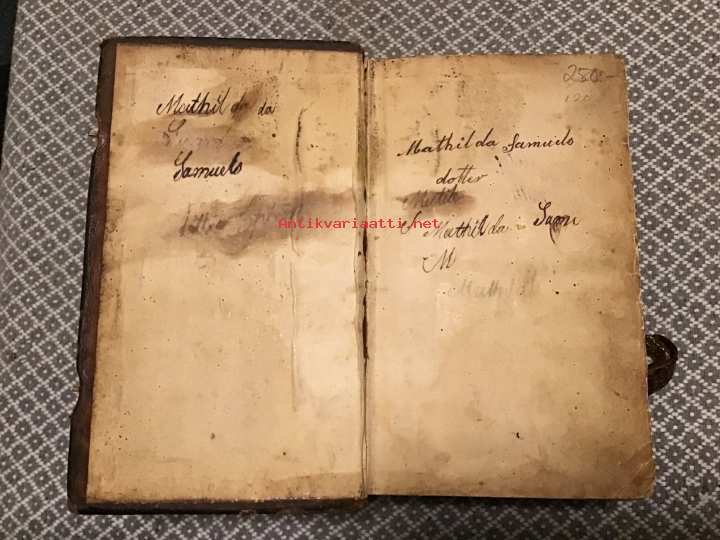 Mathil da da
Samuels
Antikvariaatti.net
250:-
120
Mathilda Samuels
dotter
Mathil
S Mathilda Sam
M
Mathil